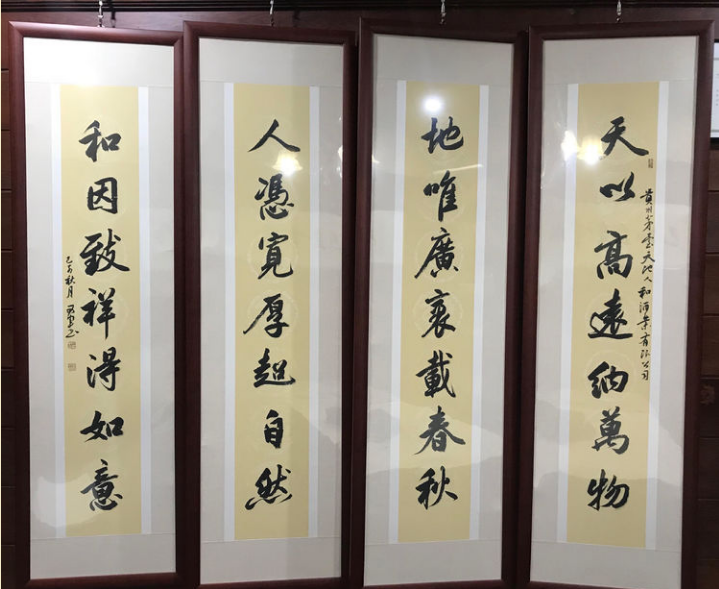 天以高遠納萬物
貴州茅臺天地人和酒業有限公司
地唯廣袤載春秋
人憑寬厚超自然
和因致祥得如意
秋月